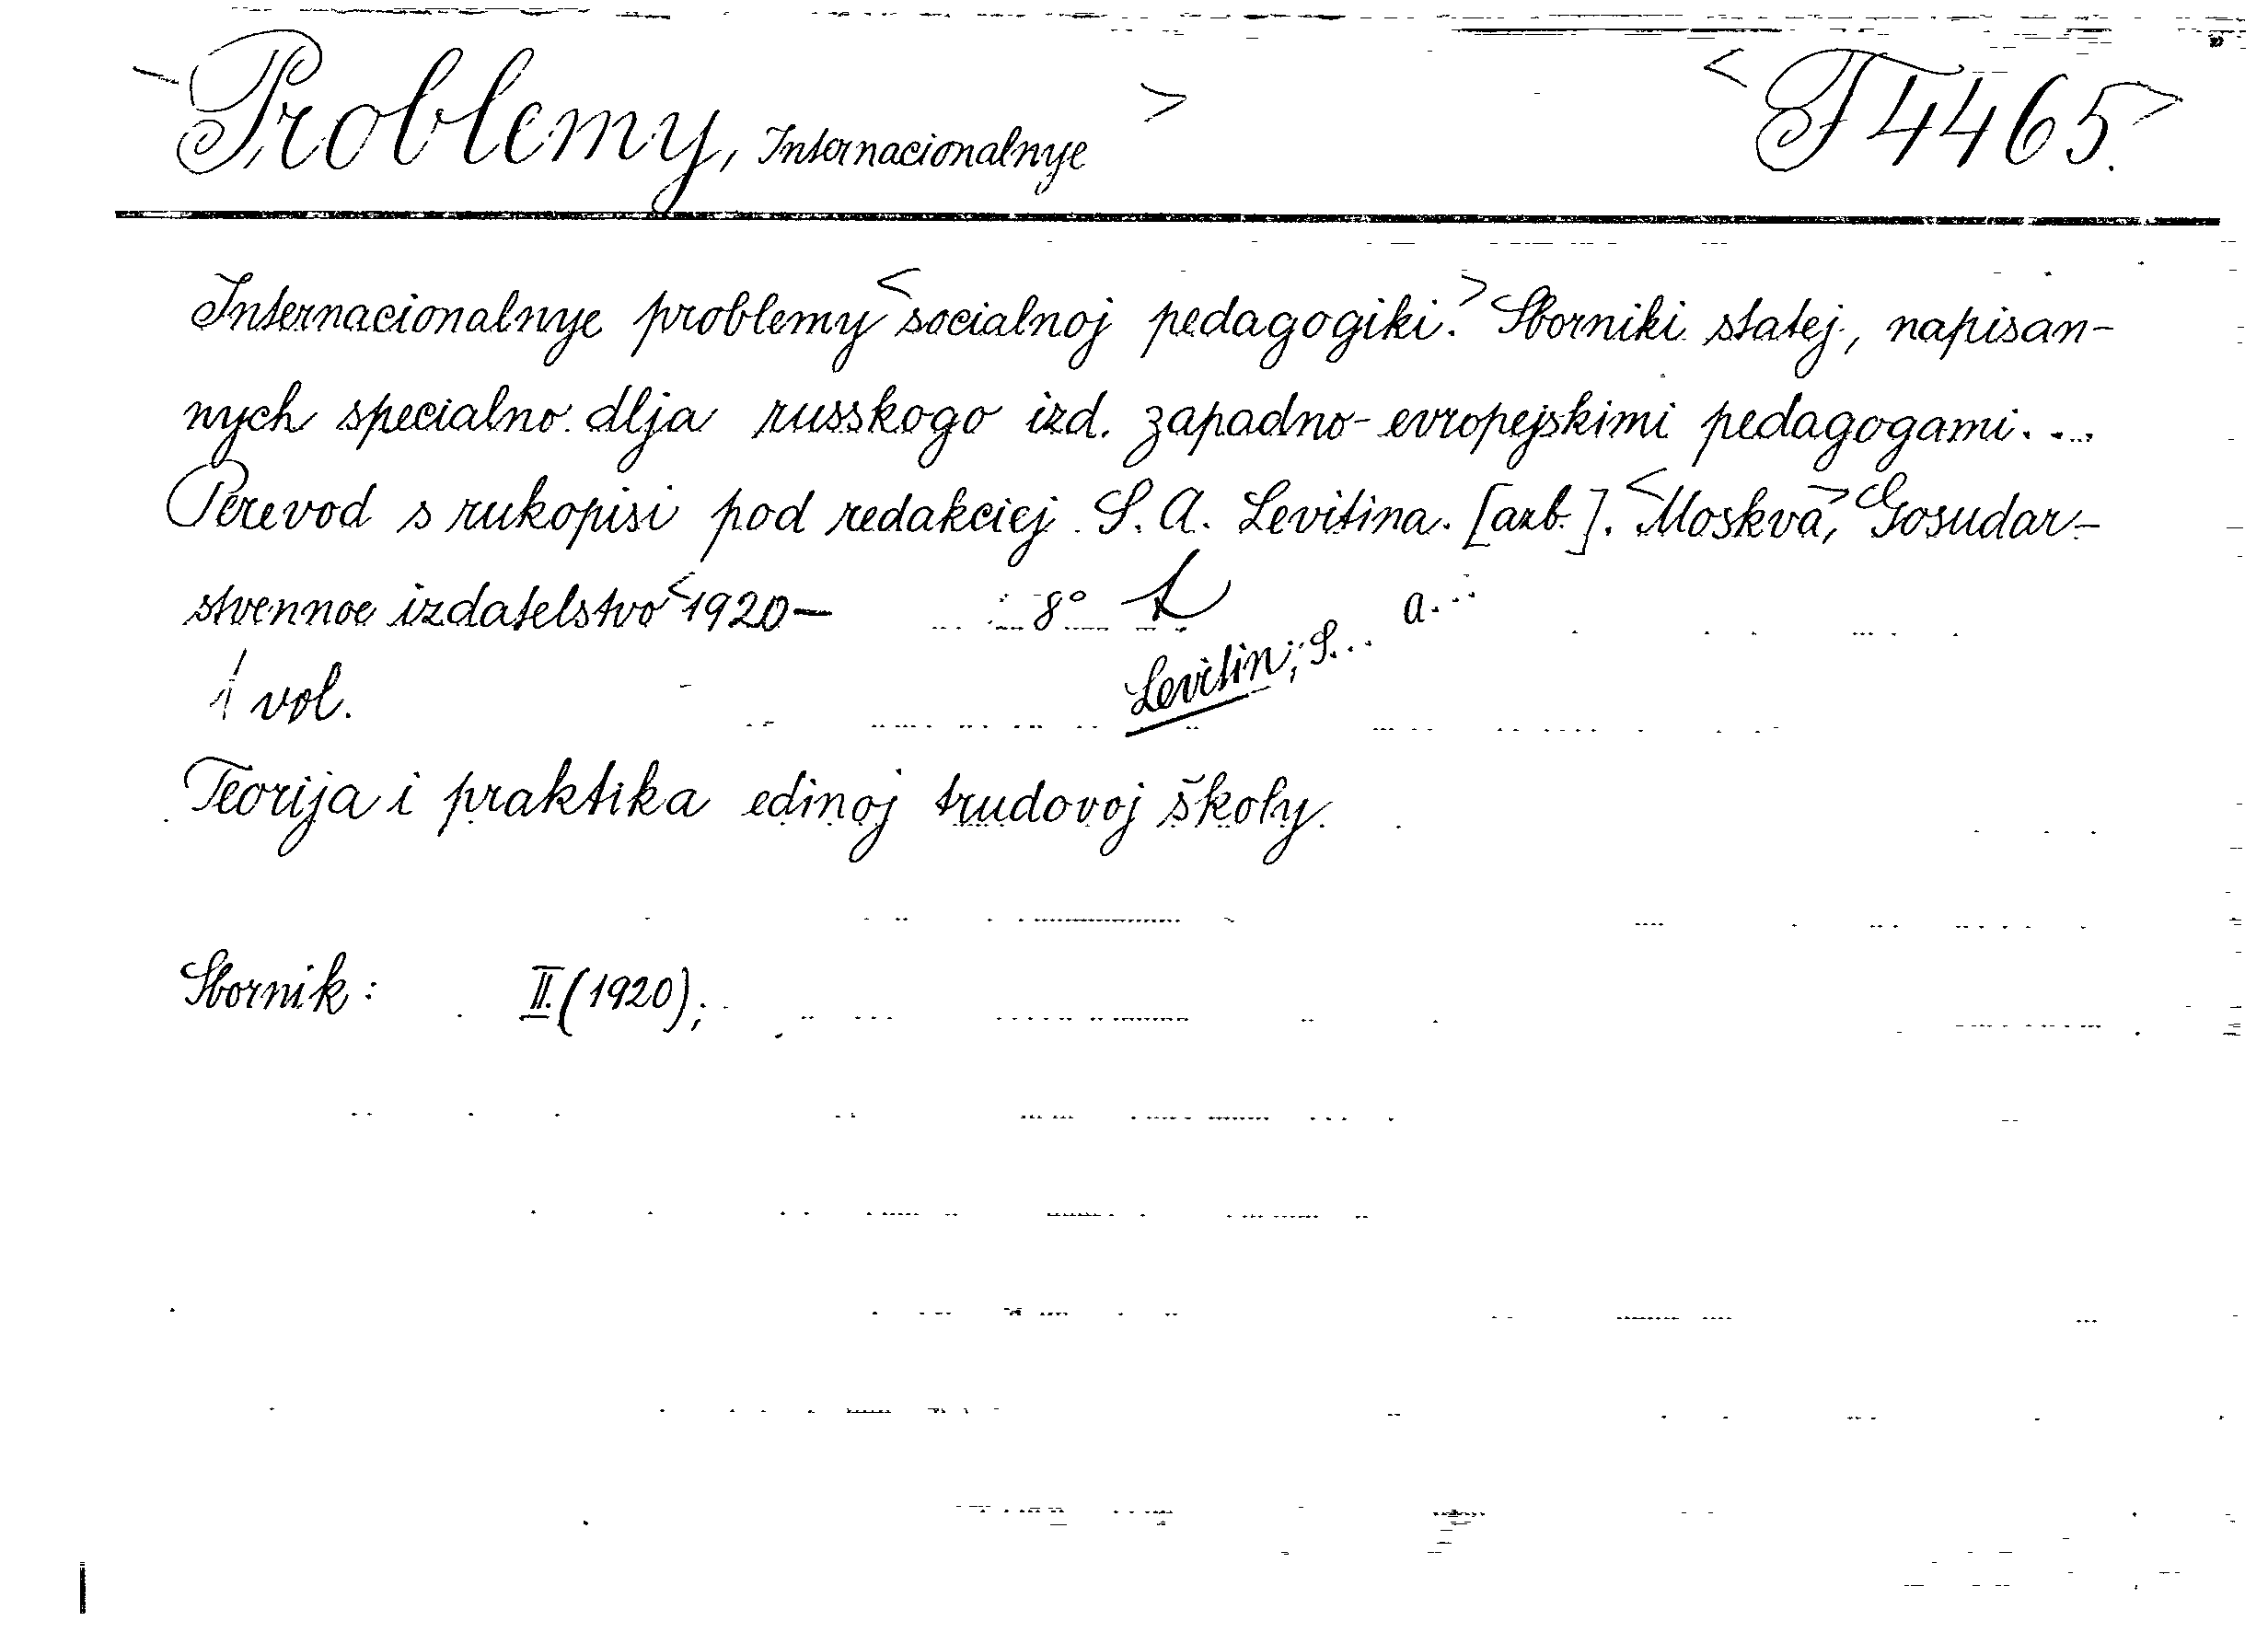 <Problemy, Internacionalnye> <F 4465.>
Internacionalnye problemy <socialnoj pedagogiki.> Sborniki statej, napisan-
nych specialno dlja russkogo izd. zapadno-evropejskimi pedagogami. ...
Perevod s rukopisi pod redakciej S. A. Levitina. [azb.]. <Moskva,> Gosudar-
stvennoe izdatelstvo <1920— 8°
Levitin, S... A...
1 vol.
Teorija i praktika edinoj trudovoj školy.
Sbornik: II. (1920);